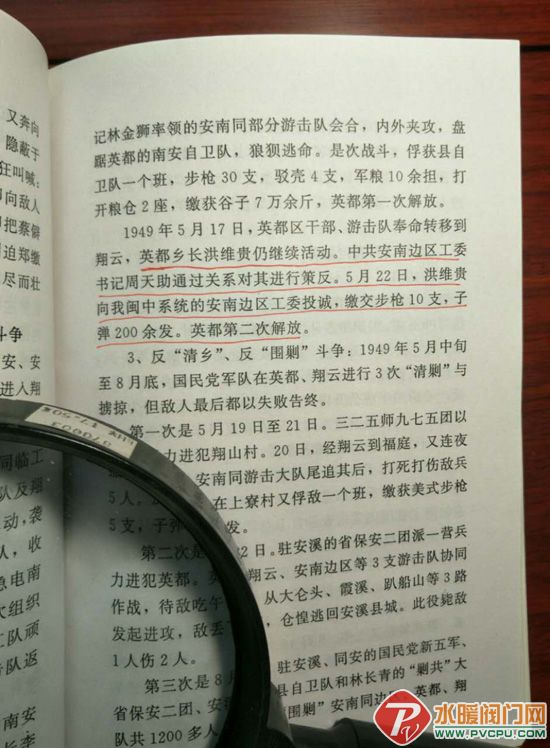 又奔向
隐蔽于
狂叫喊：
即向敌人
即把蔡僻
司迫郑缴
尽而壮
斗争
安、安
进入翔
司临工
队及翔
动，袭
人，收
急电南
次组织
工队顽
击队返
南安
李名
记林金狮率领的安南同部分游击队会合，内外夹攻，盘
踞英都的南安自卫队，狼狈逃命。是次战斗，俘获县自
卫队一个班，步枪30支，驳壳4支，军粮10余担，打
开粮仓2座，缴获谷子7万余斤，英都第一次解放。
1949年5月17日，英都区干部、游击队奉命转移到
翔云，英都乡长洪维贵仍继续活动。中共安南边区工委
书记周天助通过关系对其进行策反。5月22日，洪维贵
向我闽中系统的安南边区工委投诚，缴交步枪10支，子
弹200余发。英都第二次解放。
3、反“清乡”、反“围剿”斗争：1949年5月中旬
至8月底，国民党军队在英都、翔云进行3次“清剿”与
掳掠，但敌人最后都以失败告终。
第一次是5月19日至21日。三二五师九七五团以
力进犯翔山村。20日，经翔云到福庭，又连夜
安南同游击大队尾追其后，打死打伤敌兵
5人。在上寮村又俘敌一个班，缴获美式步枪
5支，子弹发。
第二次是2日。驻安溪的省保安二团派一营兵
力进犯英都。英翔云、安南边区等3支游击队协同
作战，待敌吃午从大仑头、霞溪、趴船山等3路
发起进攻，敌丢下仓惶逃回安溪县城。此役毙敌
1人伤2人。
第三次是8驻安溪、同安的国民党新五军、
省保安二团、县自卫队和林长青的“剿共”大
队共1200多人围剿”安南同边区、英都、翔
水暖阀门网
WWW.PVCPU.COM